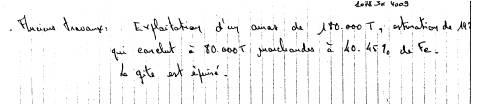 1078 3X 4009
. Anciens travaux: Exploitation d'un amas de 180.000T, estimation de 19
qui conclut à 80.000T marchandes à 40.45% de Fe.
Le gîte est épuisé.